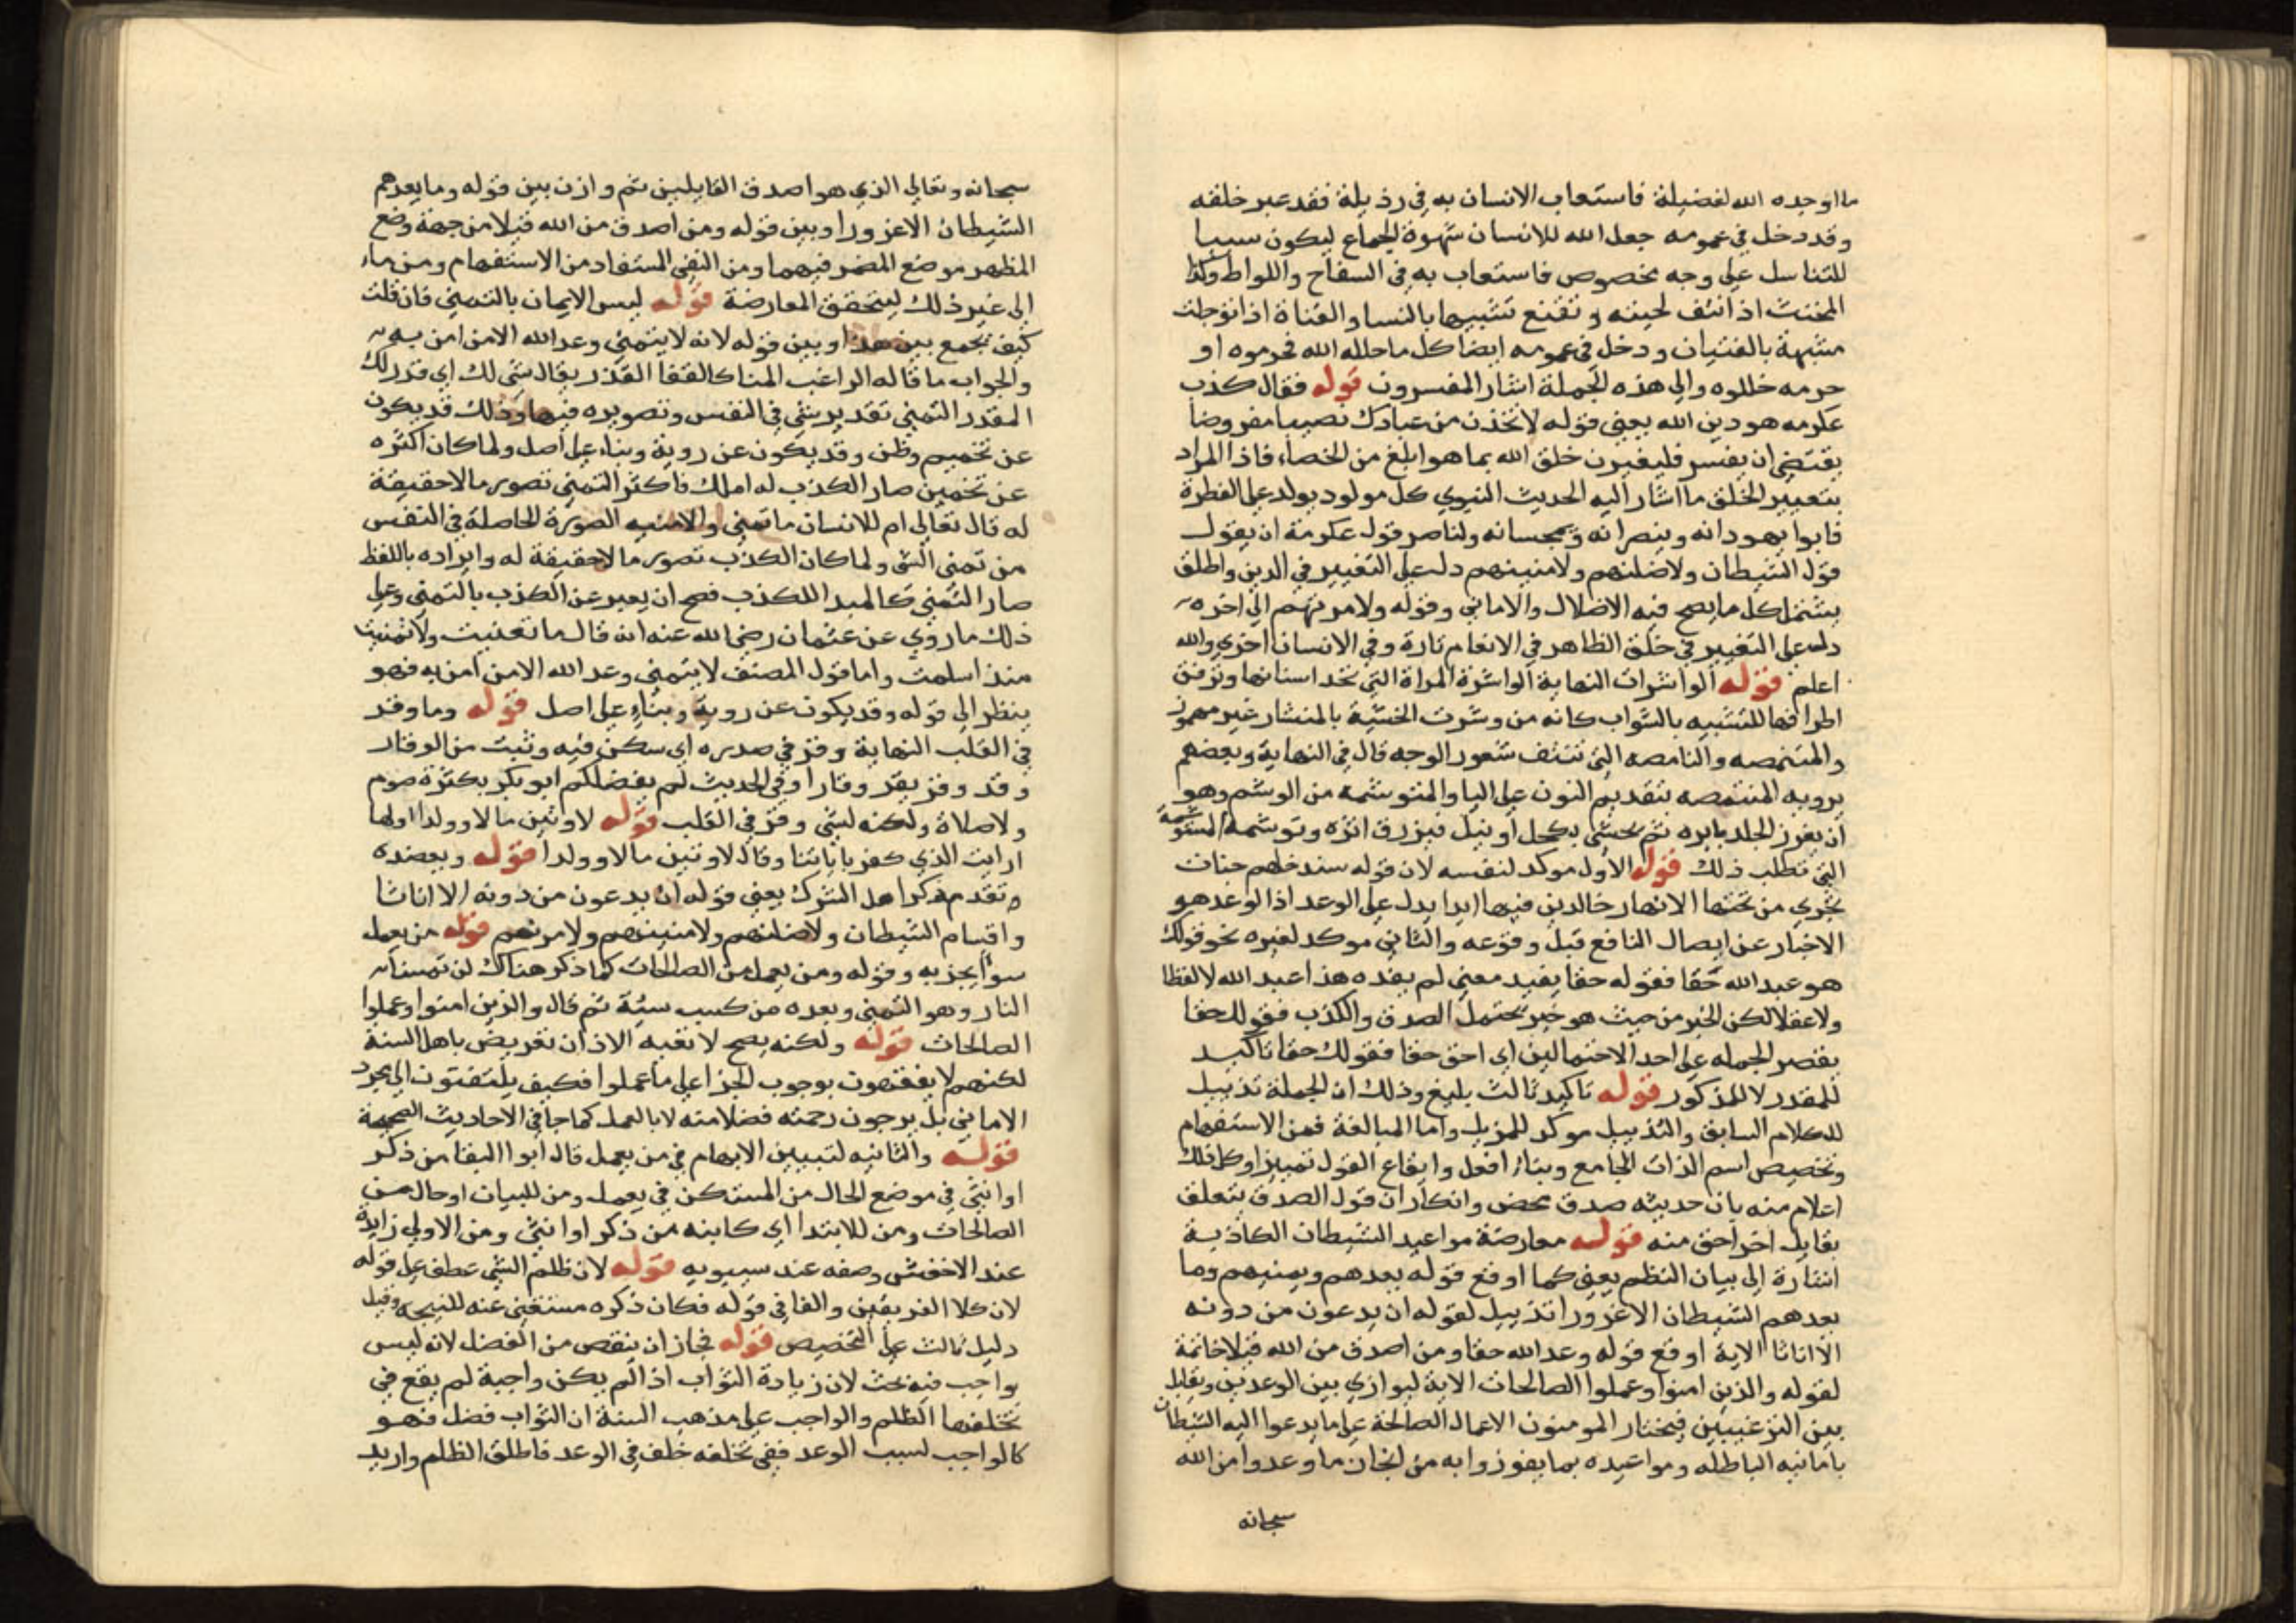 ما اوجده الله لفضيلة فاستعاب الانسان به في رذيلة فقد غير خلقه
وقد دخل في عمومه جعل الله للانسان شهوة الجماع ليكون سببا
للتناسل على وجه مخصوص فاستعاب به في السفاح واللواط وكذا
المخنث اذا نتف لحيته وتقنع تشبيها بالنسا والفتاة اذا ترجلت
متشبهة بالفتيان ودخل في عمومه ايضا كل ما حلله الله فحرموه او
حرمه حللوه والي هذه الجملة اشار المفسرون قوله فقال كذب
عكرمه هو دين الله يعني قوله لاتخذن من عبادك نصيبا مفروضا
يقتضي ان يفسر فليغيرن خلق الله بما هو ابلغ من الخصاء فاذا المراد
بتغيير الخلق ما اشار اليه الحديث النبوي كل مولود يولد على الفطرة
فابوا يهودانه وينصرانه ويمجسانه ولناصر قول عكرمة ان يقول
قول الشيطان ولاضلنهم ولامنينهم دل على التغيير في الدين واطلق
يشتمل كل ما يصح فيه الاضلال والاماني وقوله ولامرنهم الي اخره
دل على التغيير في خلق الظاهر في الانعام تارة وفي الانسان اخري والله
اعلم قوله الواشرات النهاية الواشرة المراة التي تحد اسنانها وترقق
اطرافها للتشبيه بالشواب كانه من وشرت الخشبة بالمنشار غير مهموز
والمتنمصه والنامصه التي تنتف شعور الوجه قال في النهاية وبعضهم
يرويه المنتمصه بتقديم النون على اليا والمتوشمه من الوشم وهو
ان يغرز الجلد بابره ثم يحشي بكحل او نيل فيزرق اثره وتوشمه المستوشمة
التي تطلب ذلك قوله الاول موكد لنفسه لان قوله سندخلهم جنات
تجري من تحتها الانهار خالدين فيها ابدا يدل على الوعد اذ الوعد هو
الاخبار عن ايصال النافع قبل وقوعه والثاني موكد لغيره نحو قولك
هو عبد الله حقا فقوله حقا يفيد معني لم يفده هذا عبد الله لا لفظا
ولا عقلا لكن الخبر من حيث هو خبر يحتمل الصدق والكذب فقولك حقا
يقصر الجمله على احد الاحتمالين اي احق حقا فقولك حقا تاكيد
للمقدر لا للمذكور قوله تاكيد ثالث بليغ وذلك ان الجملة تذييل
للكلام السابق والتذييل موكد للمذيل واما المبالغة فمن الاستفهام
وتخصيص اسم الذات الجامع وبناء افعل وايقاع القول تمييزا وكل ذلك
اعلام منه بان حديثه صدق محض وانكار ان قول الصدق يتعلق
بقايل اخر احق منه قوله معارضة مواعيد الشيطان الكاذبة
اشارة الي بيان النظم يعني كما اوقع قوله يعدهم ويمنيهم وما
يعدهم الشيطان الا غرورا تذييل لقوله ان يدعون من دونه
الا اناثا الاية اوقع قوله وعد الله حقا ومن اصدق من الله قيلا خاتمة
لقوله والذين امنوا وعملوا الصالحات الاية ليوازي بين الوعدين ويقابل
بين الترغيبين فيختار المومنون الاعمال الصالحة على ما يدعوا اليه الشيطان
بامانيه الباطله ومواعيده بما يفوزوا به من انجاز ما وعدوا من الله
سبحانه
سبحانه وتعالي الذي هو اصدق القايلين ثم وازن بين قوله وما يعدهم
الشيطان الا غرورا وبين قوله ومن اصدق من الله قيلا من جهة وضع
المظهر موضع المضمر فيهما ومن النفي المستفاد من الاستفهام ومن ما
الي غير ذلك ليتحقق المعارضة قوله ليس الايمان بالتمني فان قلت
كيف تجمع بين هذا وبين قوله لانه لا يتمني وعد الله الا من امن به
والجواب ما قاله الراغب المنا كالقفا القدر يقال مني لك اي قدر لك
المقدر التمني تقدير شي في النفس وتصويره فيها وذلك قد يكون
عن تخميم وظن وقد يكون عن روية وبناء على اصل ولما كان اكثره
عن تخمين صار الكذب له املك فاكثر التمني تصور ما لا حقيقة
له قال تعالي ام للانسان ما تمني والامنيه الصورة الحاصلة في النفس
من تمني الشي ولما كان الكذب تصور ما لا حقيقة له وايراده باللفظ
صار التمني كالمبدا للكذب فصح ان يعبر عن الكذب بالتمني وعلى
ذلك ما روي عن عثمان رضي الله عنه انه قال ما تغنيت ولا تمنيت
منذ اسلمت واما قول المصنف لا يتمني وعد الله الا من امن به فهو
ينظر الي قوله وقد يكون عن روية وبناء على اصل قوله وما وقر
في القلب النهاية وقر في صدره اي سكن فيه وثبت من الوقار
وقد وقر يقر وقارا وفي الحديث لم يفضلكم ابو بكر بكثرة صوم
ولا صلاة ولكنه لشي وقر في القلب قوله لاوتين مالا وولدا اولها
ارايت الذي كفر باياتنا وقال لاوتين مالا وولدا قوله وبعضده
وتقدم ذكر اهل الشرك يعني قوله ان يدعون من دونه الا اناثا
واقسام الشيطان ولاضلنهم ولامنينهم ولامرنهم قوله من يعمل
سوا يجز به وقوله ومن يعمل من الصالحات كما ذكر هناك لن تمسنا
النار وهو التمني وبعده من كسب سيئة ثم قال والذين امنوا وعملوا
الصالحات قوله ولكنه يصح لا تعبه الاذان تعريض باهل السنة
لكنهم لا يفقهون بوجوب الجزا على ما عملوا فكيف يلتفتون الي مجرد
الاماني بل يرجون رحمته فضلا منه لا بالعمل كما جا في الاحاديث الصحيحة
قوله والثانيه لتبيين الابهام في من يعمل قال ابوا البقا من ذكر
او انثي في موضع الحال من المستكن في يعمل ومن للبيان او حال من
الصالحات ومن للابتدا اي كاينه من ذكر او انثي ومن الاولي زايدة
عند الاخفش وصفه عند سيبويه قوله لان ظلم الشي عطف على قوله
لان كلا الفريقين والفا في قوله فكان ذكره مستغني عنه للنتيجه وقيل
دليل ثالث على التخصيص قوله فجاز ان ينقص من الفضل لانه ليس
بواجب فيه بحث لان زيادة الثواب اذا لم يكن واجبة لم يقع في
تخلفها الظلم والواجب على مذهب السنة ان الثواب فضل فهو
كالواجب لسبب الوعد ففي تخلفه خلف في الوعد فاطلق الظلم واريد